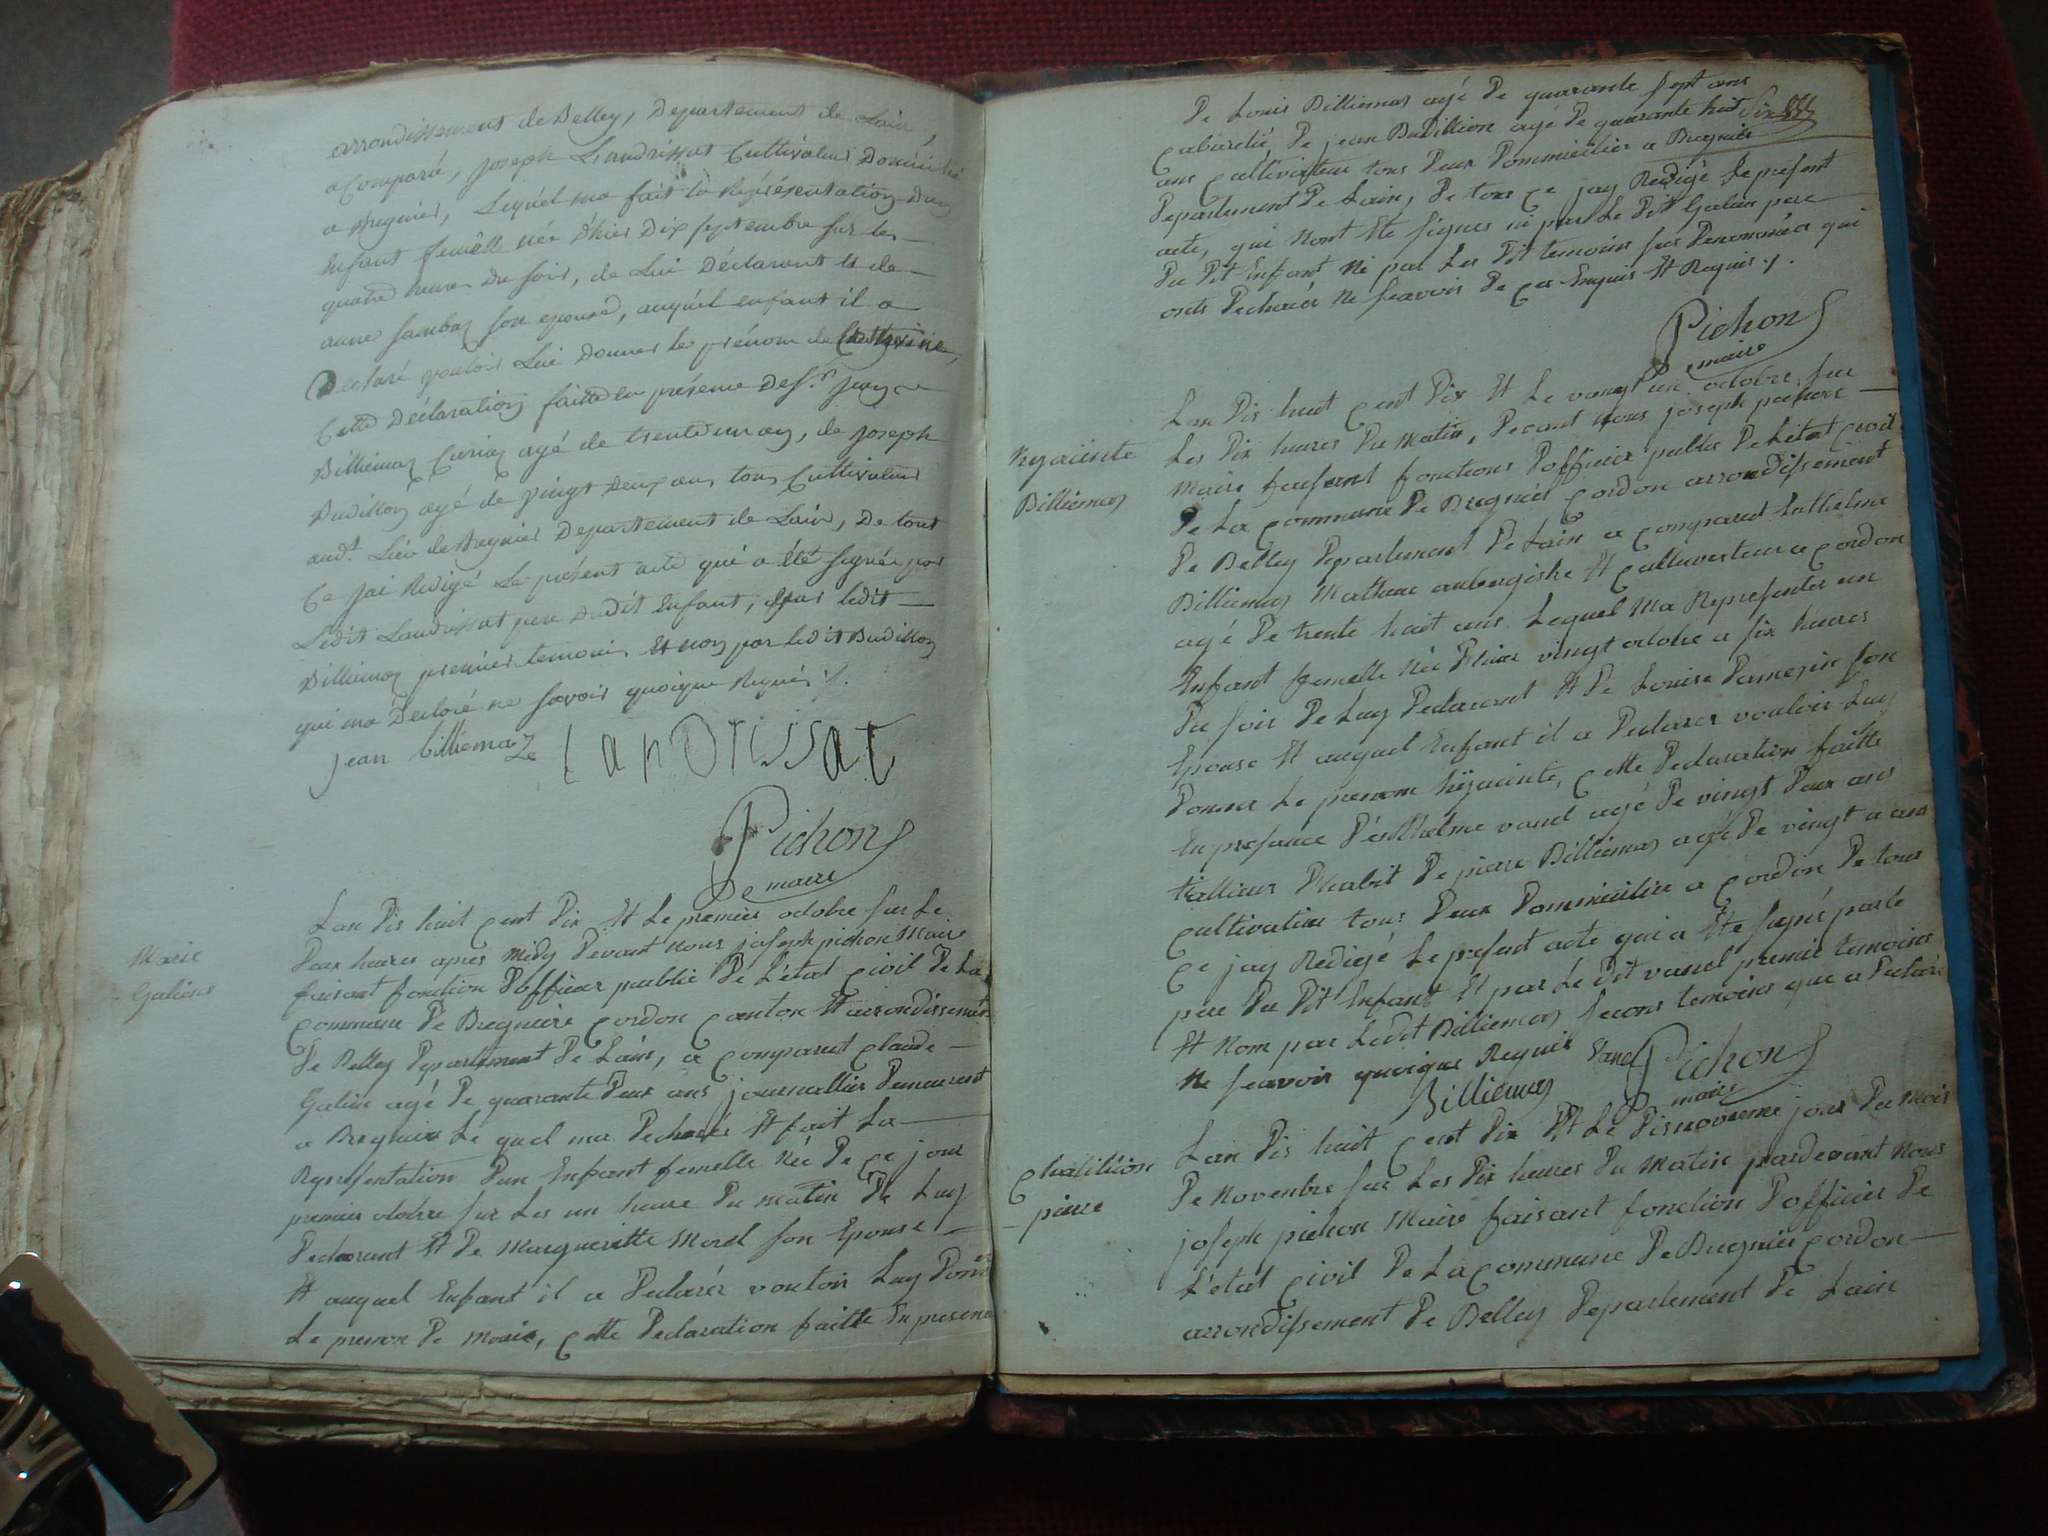 arrondissement de Belley, Departement de Lain,
a Comparû, joseph Landrissat Cultivateur Domicilié
a Bregnier, Lequel ma fait la Représentation Dun
Enfant femelle née d'hier Dix septembre sur les
quatre heures Du soir, de Lui Déclarant et de
anne son epouse, auquel enfant il a
Declaré vouloir Lui Donner le prénom de Catherine,
Cette Déclaration faitte en présence De jean
Billiemaz agé de trente un an, de joseph
Budillon agé de vingt Deux ans, tous Cultivateurs
aud.t Lieu de Bregnier Departement de Lain, De tout
Ce jai Redigé Le présent acte qui a été signée par
Ledit Landrissat pere dudit Enfant, et par ledit
Billiemaz premier temoin et non par ledit Budillon
qui ma Déclaré ne savoir quoique Requis ./.
jean billiemaz Landrissat
Pichon
maire
Marie
Galiens
Lan Dis huit Cent Dix Et Le premier octobre sur Le
Deux heures apres Midy Devant nous joseph pichon Maire
faisant fonction Dofficier public De L'état Civil De La
Commune De Bregnier Cordon Canton Et arrondissement
De Belley Departement De Lain, a Comparut Claude
Galin agé De quarante Deux ans journallier Demeurent
a Bregnier Le quel ma Declarés Et fait La
Representation Dun Enfant femelle Née De Ce jour
premier octobre sur Les un heure Du matin De Luy
Declarant Et De Margueritte Morel son Epouse
Et auquel Enfant il a Declarér vouloir Luy Donner
Le prenon De Marie, Cette Declaration faitte En presence
De Louis Billiemaz agé De quarante sept ans
Cabaretié, De jean Budillion agé De quarante huit
ans Cultivateur tous Deux Dommicilier a Bregnier
Departement De Lain, De tous Ce jay Redigé Le present
acte, qui Nont Ete signes ni par Le Dit Galin pere
Du Dit Enfant Ni par Les Dit temoins sus Denommés qui
onts Declarés Ne scavoir De Ce Enquis Et Requis ./.
Pichon
maire
hyacinte
Billiemaz
Lan Dis huit Cent Dix Et Le vingt un octobre sur
Les Dix heures Du Matin, Devant Nous joseph pichon
Maire faisant fonctions Dofficier public De Létat Civil
De La Commune De Bregnier Cordon arrondissement
De Belley Departement De Lain a Comparut Anthelme
Billiemaz Mathieu aubergiste Et Cultivateur a Cordon
agé De trente huit ans Lequel Ma Representer un
Enfant femelle Née D'hier vingt octobre a six heures
Du soir De Luy Declarant Et De Louise Damezin son
Epouse Et auquel Enfant il a Declarer vouloir Luy
Donner Le prenom hÿacinte, Cette Declaration faitte
En presance D'enthelme vanel agé De vingt Deux ans
tallieur Dhabit De pierre Billiemaz agé De vingt a ans
Cultivateur tous Deux Dommicilier a Cordon De tous
Ce jay Redigé Le present acte qui a Ete signé par Le
pere Du Dit Enfant Et par Le Dit vanel premié temoins
Et Nom par Ledit Billiemaz secons temoins que a Declaré
Ne scavoir quoique Requis Vanel Pichon
Billiemaz maire
Chatillion
pierre
Lan Dis huit Cent Dix Et Le Disnoveme jour Du Mois
De Novembre sur Les Dix heures Du Matin pardevant Nous
joseph pichon Maire faisant fonction D'officier De
L'état Civil De La Commune De Bregnier Cordon
arrondissement De Belley Departement De Lain